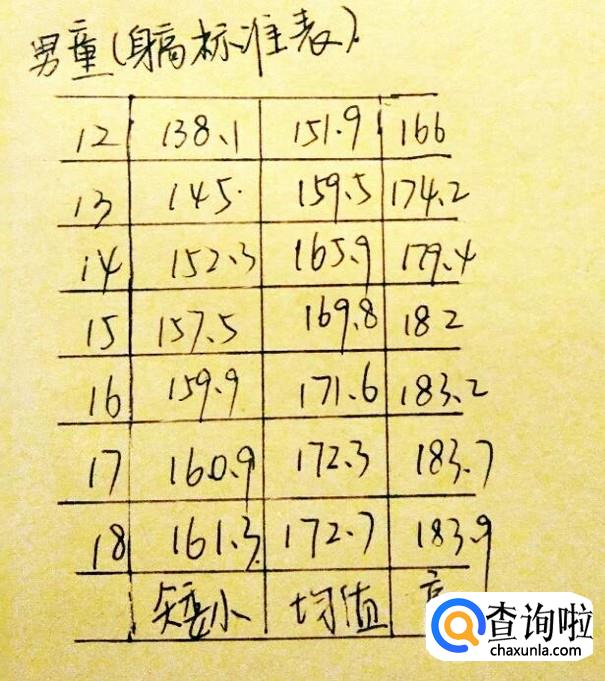 男童(身高标准表)
12 138.1 151.9 166
13 145. 159.5 174.2
14 152.3 165.9 179.4
15 157.5 169.8 182
16 159.9 171.6 183.2
17 160.9 172.3 183.7
18 161.3 172.7 183.9
矮小 均值
查询啦
chaxunla.com